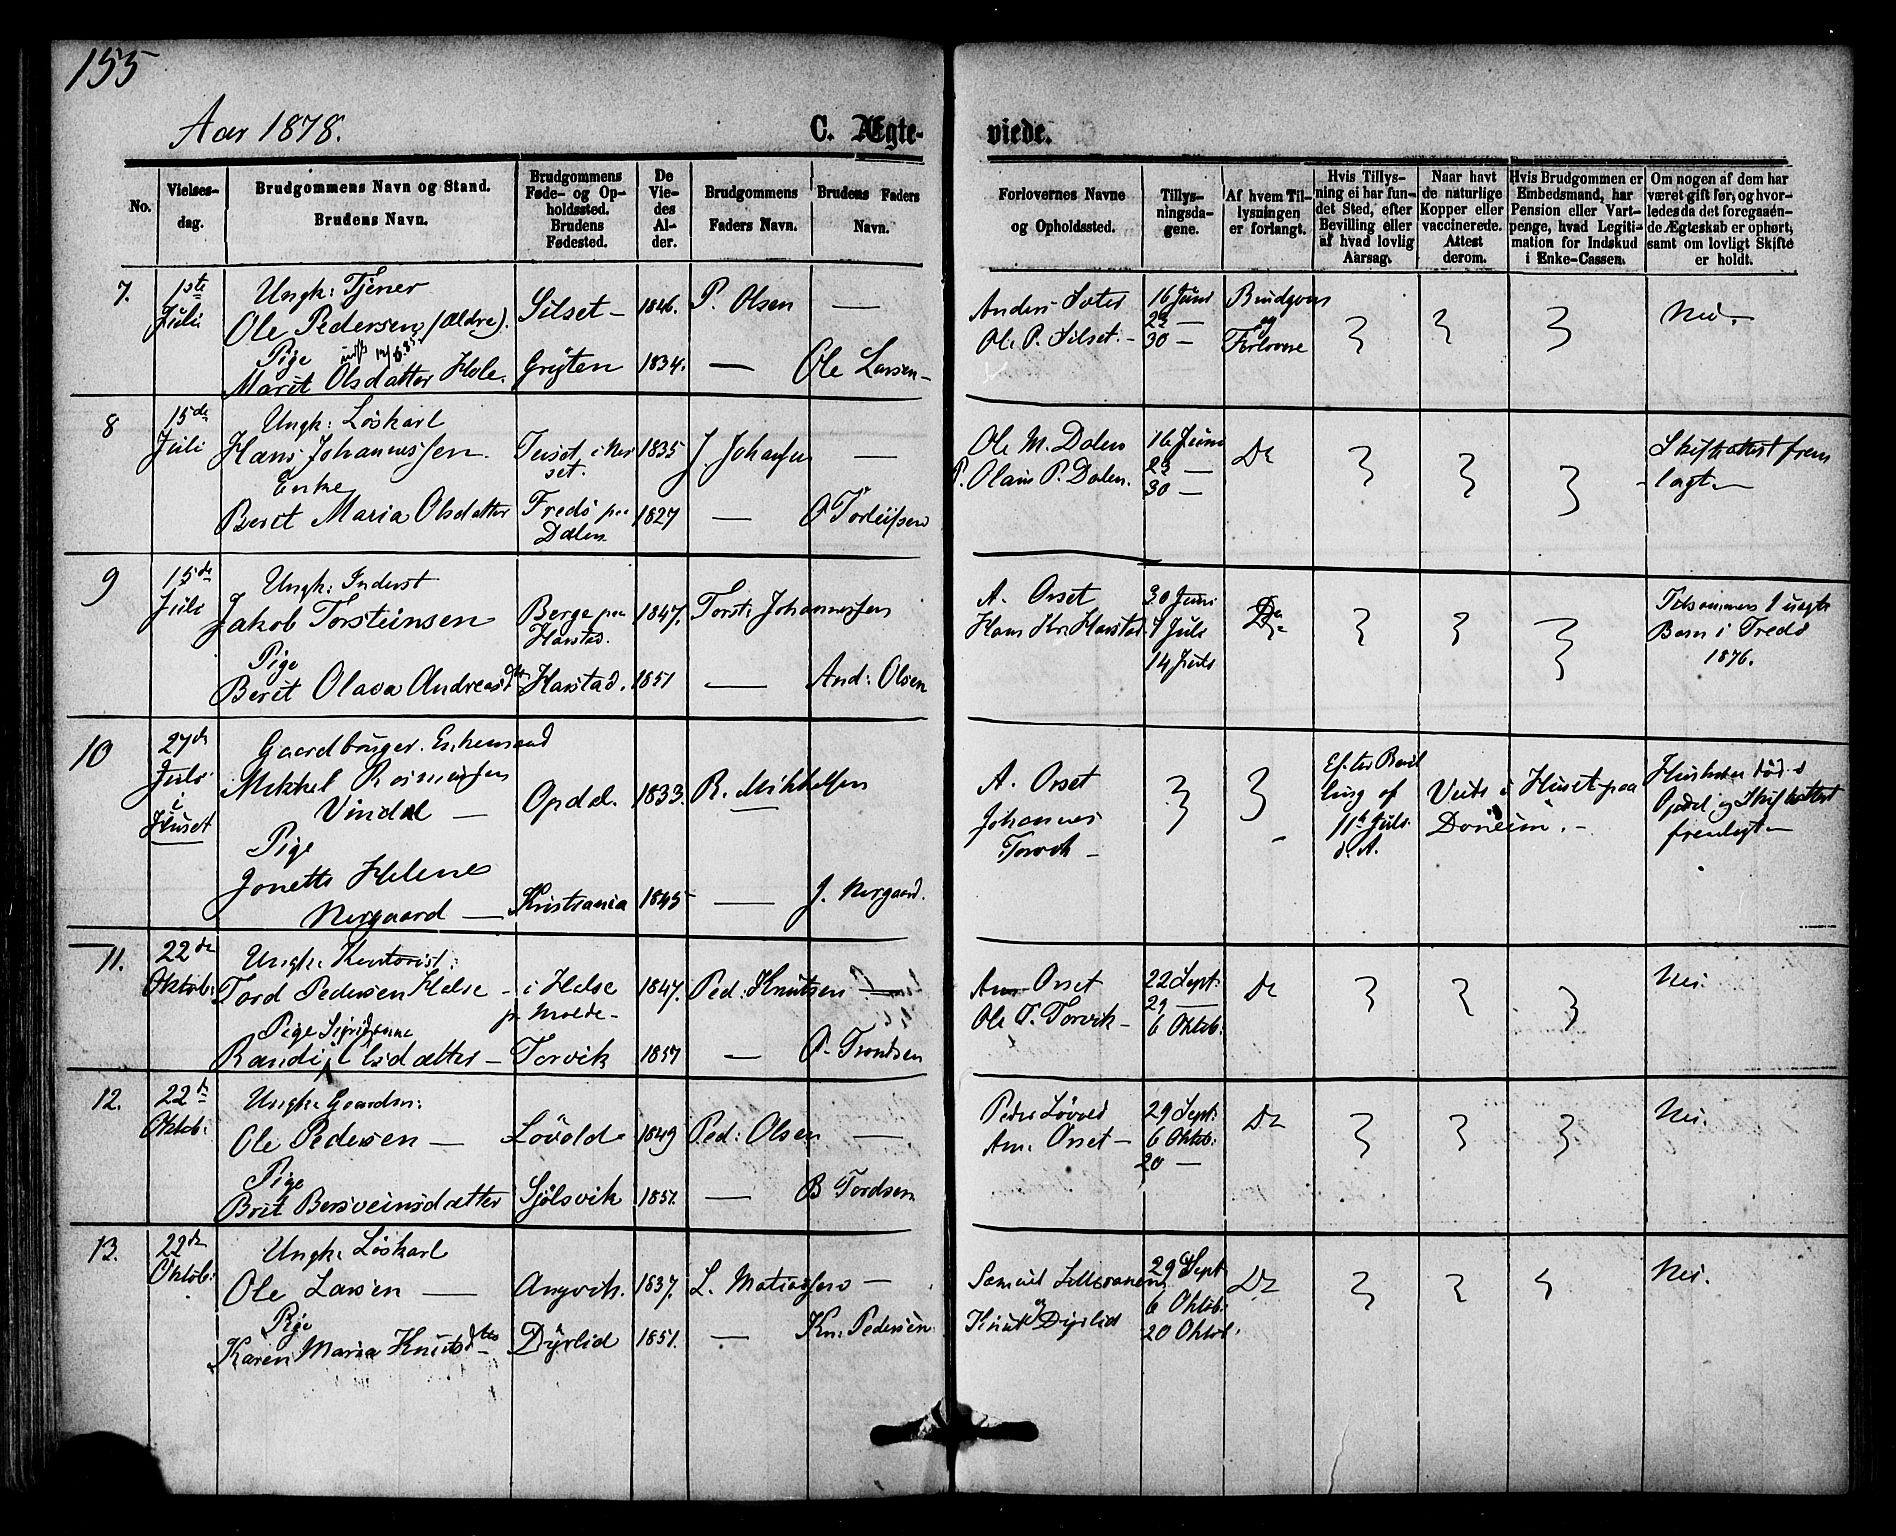 155
Aar 1878.
C. Ægte-
viede.
No.
Vielses-
dag.
Brudgommens Navn og Stand.
Brudens Navn.
Brudgommens
Føde- og Op-
holdssted.
Brudens
Fødested.
De
Vie-
des
Al-
der.
Brudgommens
Faders Navn.
Brudens Faders
Navn.
Forlovernes Navne
og Opholdssted.
Tillys-
ningsda-
gene.
Af hvem Til-
lysningen
er forlangt.
Hvis Tillys-
ning ei har fun-
det Sted, efter
Bevilling eller
af hvad lovlig
Aarsag.
Naar havt
de naturlige
Kopper eller
vaccinerede.
Attest
derom.
Hvis Brudgommen er
Embedsmand, har
Pension eller Vart-
penge, hvad Legiti-
mation for Indskud
i Enke-Cassen.
Om nogen af dem har
været gift før, og hvor-
ledes da det foregaaen-
de Ægteskab er ophørt,
samt om lovligt Skifte
er holdt.
7.
1ste
Juli
Ungk: Tjener
Ole Pedersen (ældre).
Pige
Marit Olsdatter Hole.
Silset –
Gryten
1846.
1834.
P. Olsen —
— Ole Larsen –
Ole P. Silset. –
16 Juni
23 —
30 —
og
Forlovere
Nei. –
8
15de
Juli
Ungk: Løskarl
Hans Johannessen.
Enke
Berit Maria Olsdatter
set.
Fredø paa
Dalen
1835
1827
J. Johansen —
—
Ole M. Dalen
P. Dalen.
16 Juni
23 —
30 —
Do
Skifteattest frem
lagt –
9
15de
Juli
Ungk: Inderst
Jakob Torsteinsen
Pige
Berit Olava Andreasdtr
Berge paa
Harstad.
Harstad.
1847.
1851
Torst: Johannessen
— And: Olsen
A. Orset
Hans Harstad.
30 Juni
7 Juli
14 Juli
Do
Tilsammen 1 uægte
Barn i Fredø
1876.
10
27de
Juli
i
Huset
Gaardbruger. Enkemand
Mikkel
Vindal —
Pige
Jonette Helene
Nergaard —
Opdal.
Kristiania
1833.
1845
R. Mikkelsen
—
— J. Nergaard.
A. Orset
Johannes
Torvik –
Efter Bevil
ling af
11te Juli
d. A.
Viede i Huset paa
Hustruen død i
Opdal og Skifteattest
fremlagt –
11.
22de
Oktob:
Ungk: Kontorist:
Tord Pedersen Helse –
Pige Sigridanne
Randi
i Helse
pr Molde –
Torvik
1847.
1857
Ped: Knutsen —
— P. Trondsen
Orset
Ole P. Torvik –
22 Sept:
29 —
6 Oktob:
Do
Nei.
12.
22de
Oktob:
Ungk: Gaardm:
Ole Pedersen —
Pige
Brit Bersveinsdatter
Løvold –
Sjølsvik
1849
1851.
Ped: Olsen —
— B Tordsen
Peder Løvold
Orset –
29 Sept:
6 Oktob:
20 —
Do
Nei.
13.
22de
Oktob:
Ungk: Løskarl
Ole Larsen —
Pige
Karen Maria Knutsdtr
Angvik.
Dyrlid
1837.
1851.
L. —
— Kn: Pedersen
Samuel
og
Knut Dyrlid
29 Sept
6 Oktob:
20 Oktob.
Do
Nei.